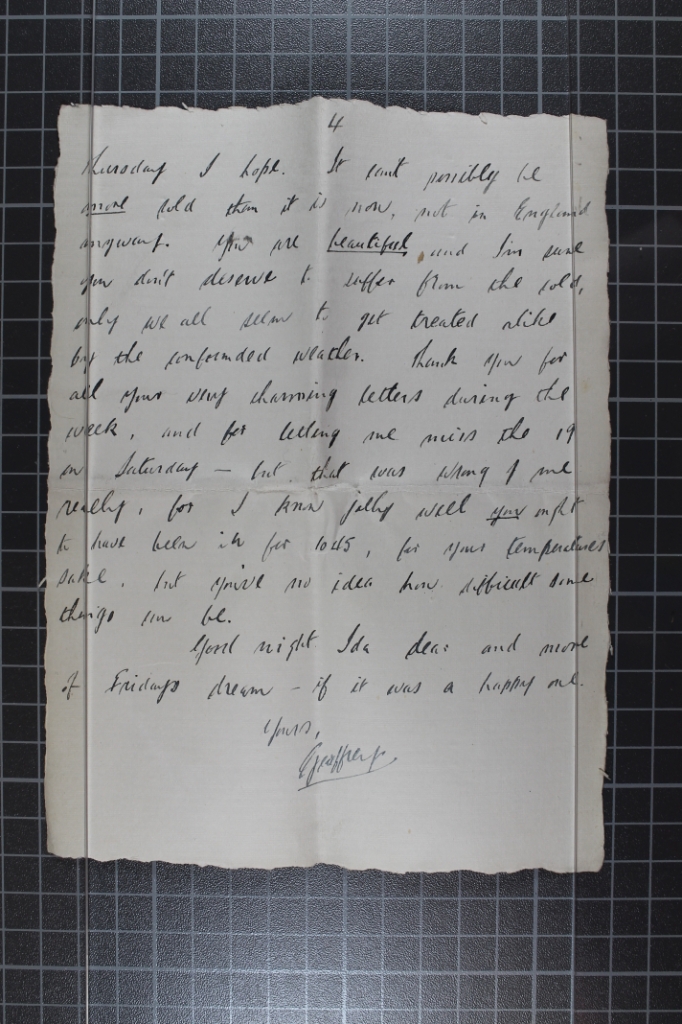 4
Thursday I hope. It can't possibly be
more cold than it is now, not in England
anyway. You are beautiful, and I'm sure
you don't deserve to suffer from the cold,
only we all seem to get treated alike
by the confounded weather. Thank you for
all your very charming letters during the
week, and for letting me miss the 19
on Saturday – but that was wrong of me
really, for I knew jolly well you ought
to have been in for 1045, for your temperatures
sake. but you've no idea how difficult some
things can be.
Good night Ida dear and more
of Fridays dream – if it was a happy one.
Yours,
Geoffrey.